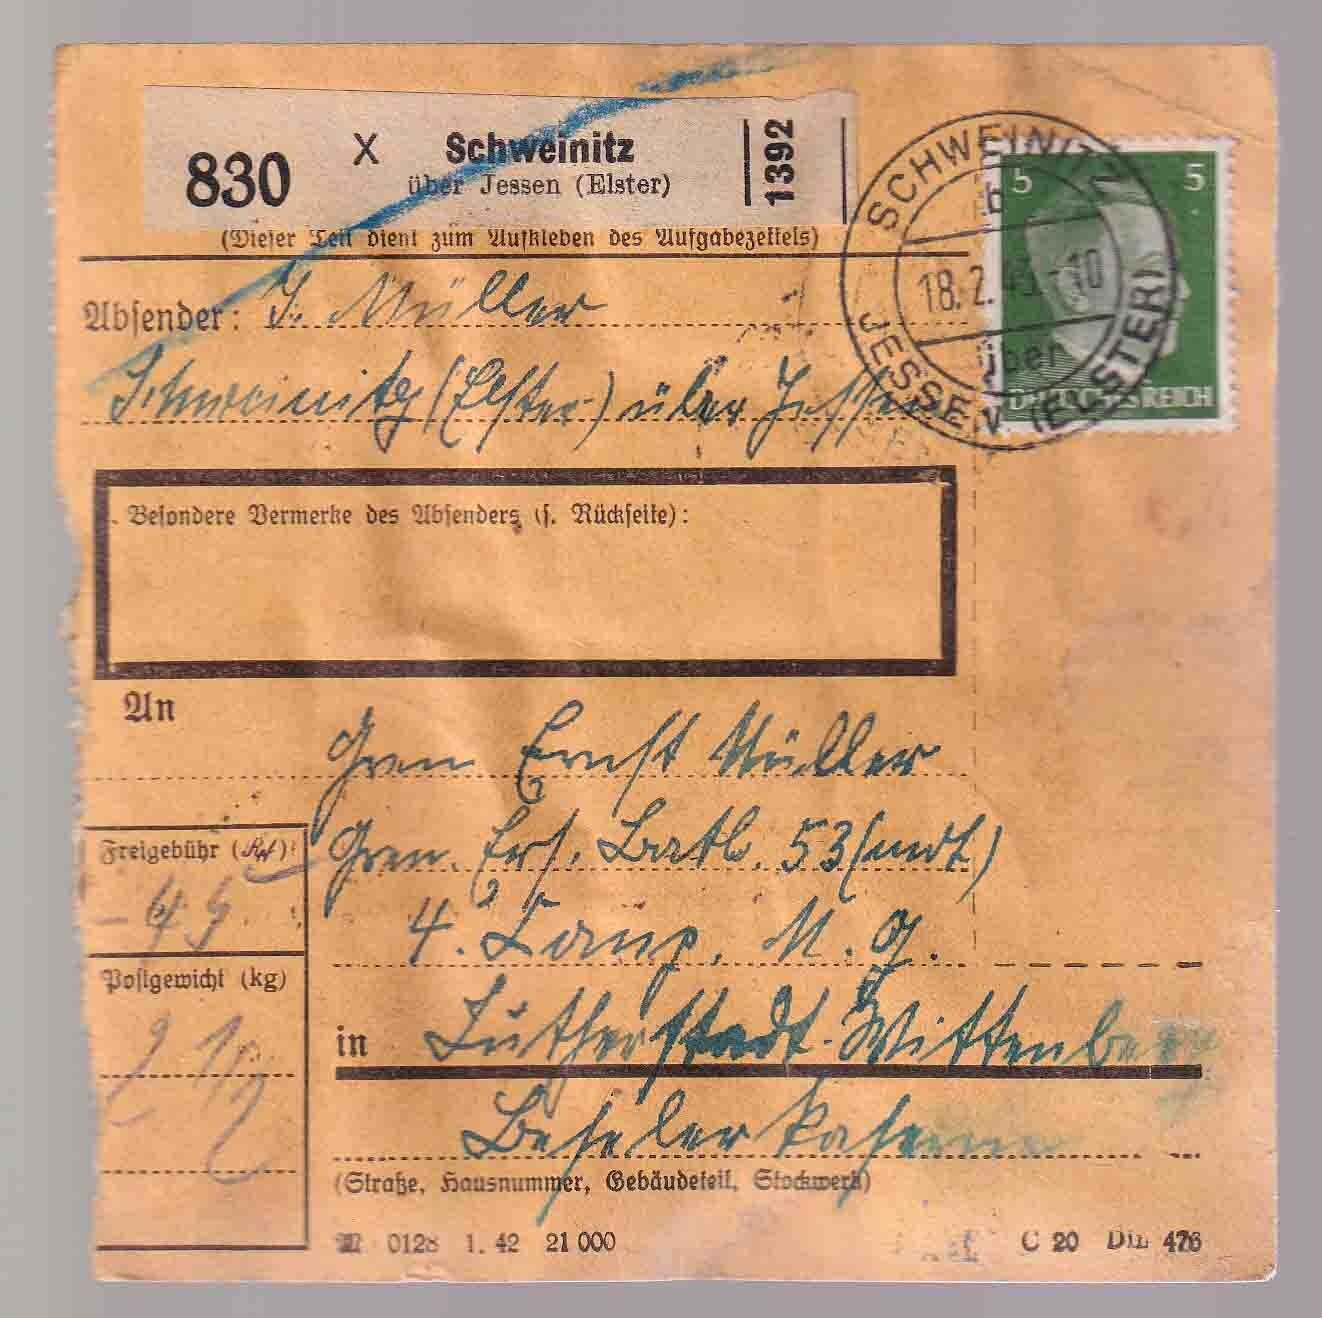 830 X Schweinitz 1392
über Jessen (Elster)
(Dieser Teil dient zum Aufkleben des Aufgabezettels)
SCHWEINITZ
b
18.2.43.-10
über
JESSEN (ELSTER)
5 5
DEUTSCHES REICH
Absender: J. Müller
Schweinitz (Elster) über Jessen
Besondere Vermerke des Absenders (s. Rückseite):
An
Gren Ernst Müller
Gren. Ers. Batl. 53 (mot)
4. Komp. M. G.
in Lutherstadt-Wittenberg
Beseler Kaserne
(Straße, Hausnummer, Gebäudeteil, Stockwerk)
Freigebühr
Postgewicht (kg)
2 1/2
0128 1.42 21 000
C 20 Din 476